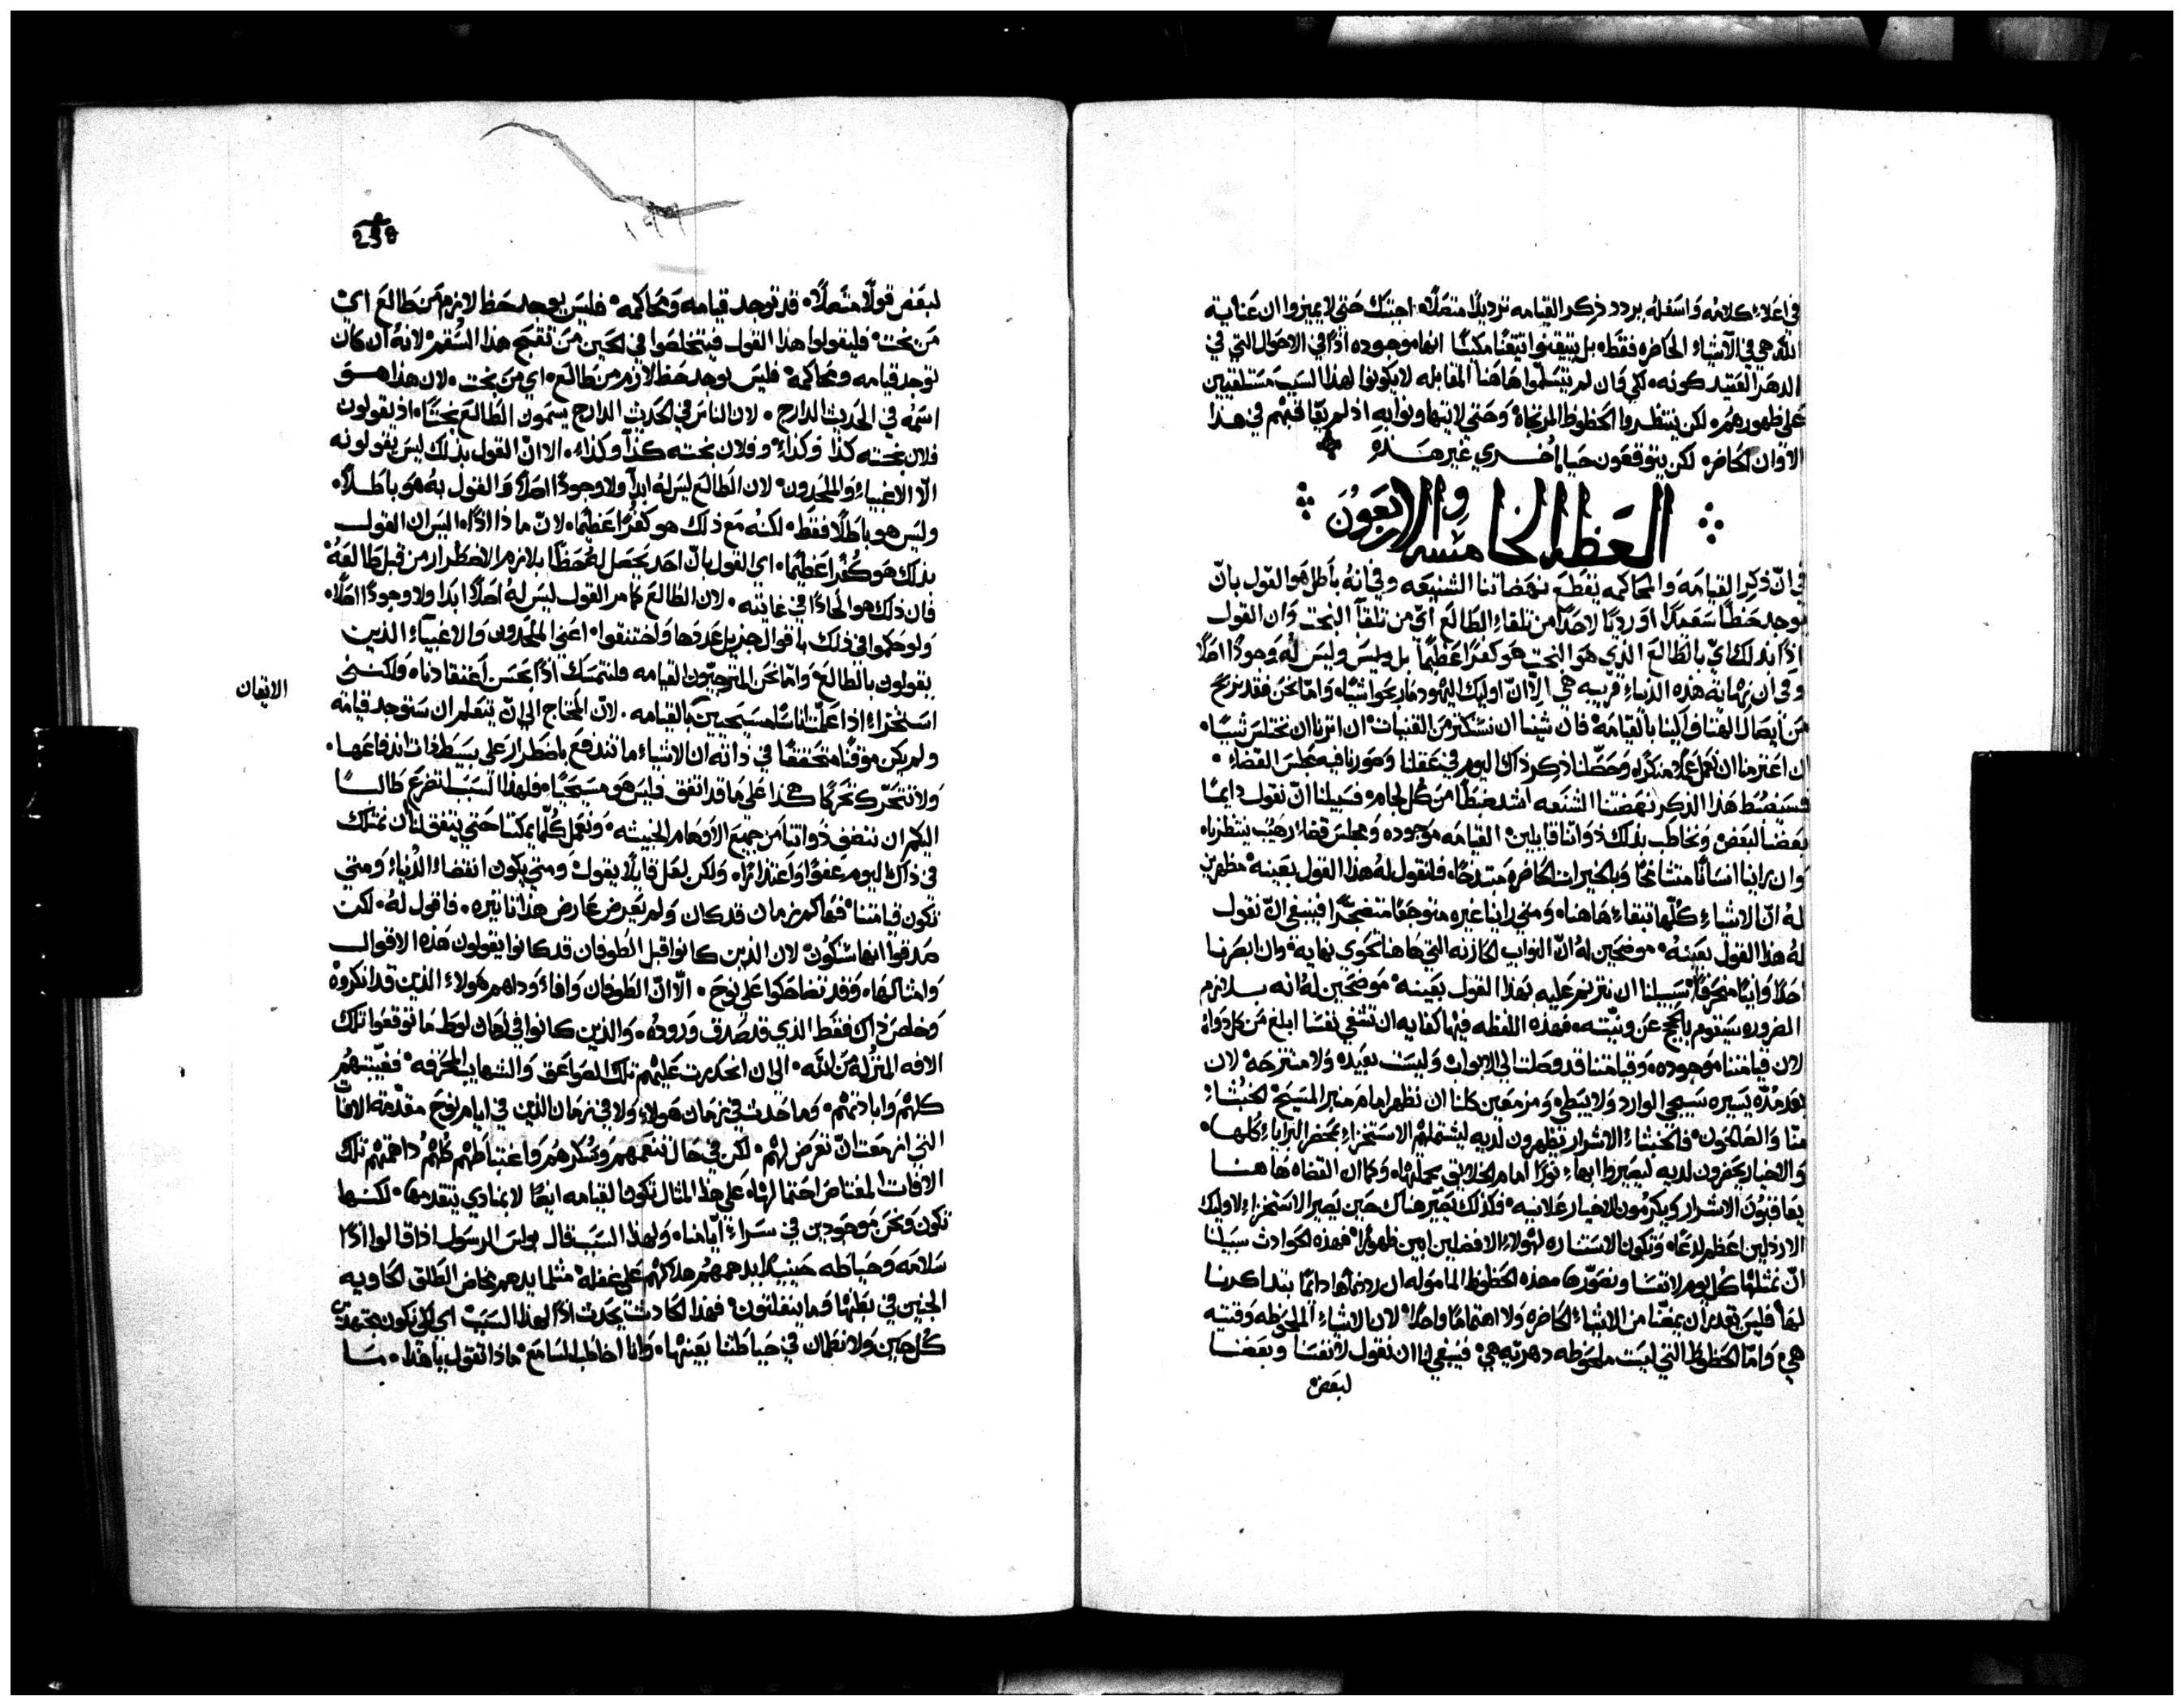 في اعلاء كلامه واسفله يردد ذكر القيامه ترديدًا متصلًا اجتنك حتي لا يميزوا ان عنايه
الله هي في الاشياء الحاضره فقط بل يتيقنوا تيقنًا مكينًا انها موجوده اذًا في الاحوال التي في
الدهر العتيد كونه لكي وان لم يتسلموا هاهنا المقابله لا يكونوا لهذا السبب مستلقيين
علي ظهورهم لكن ينتظروا الحظوظ المرتجاة وحتي لا يتهاونوا به اذ لم يعاقبهم في هذا
الاوان الحاضر لكن يتوقعون حياة اخري غير هذه
العظه الخامسه والاربعون
في انّ ذكر القيامه والمحاكمه يقطع نهضاتنا الشنيعه وفي انه باطل هو القول بانّ
يوجد حظًا سعيدًا او رديًا لاحدًا من تلقاء الطالع ايّ من تلقا البخت وان القول
اذًا بذلك ايّ بالطالع الذي هو البخت هو كفرًا عظيمًا بل وليس وليس له وجودًا اصلًا
وفي ان نهاية هذه الدنياء قريبه هي الّا انّ اوليك اليهود ما ربحوا شيًا وامّا نحن فقد نربح
من ايصال الهنا في الينا بالقيامه فان شينا ان نستكثر من القنيات ان اثرنا ان نختلس شيًا
ان اعتزمنا ان نعمل عملًا منكرًا وحصّلنا ذكر ذاك اليوم في عقلنا وصورنا فيه مجلس القضاء
فسنضبط هذا الذكر نهضتنا الشنعه اشد ضبطًا من كل لجام فسبيلنا انّ نقول دايمًا
بعضنا لبعض ونخاطب بذلك ذواتنا قايلين القيامه موجوده ومجلس قضاء رهيب ينتظرناه
وان راينا انسانًا متشامخًا وبالخيرات الحاضره مبتدخًا فلنقول له هذا القول بعينه مظهرين
له انّ الاشياء كلها تبقاء هاهنا ومتي راينا غيره متوجعًا متضجرًا فينبغي انّ نقول
له هذا القول بعينه موضحين له انّ النوايب الحازنه التي هاهنا تحوي نهاية وان ابصرنا
احدًا وانيًا منحرفًا سبيلنا ان نترنم عليه بهذا القول بعينه موضحين له انه بلازم
الضروره سيقوم بالحجج عن ونيّته فهذه اللفظه فيها كفايه ان تشفي نفسنا ابلغ من كل دواء
لان قيامتنا موجوده وقيامتنا قد وصلت الي الابواب وليست بعيده ولا منتزحه لان
بعد مدّه يسيره سيجي الوارد ولا يبطي ومزمعين كلنا ان نظهر امام منبر المسيح الخبثاء
منّا والصالحون فالخبثاء الاشرار يظهرون لديه ليشتملهم الاستخزاء بمحضر البرايا كلها
والاخيار يحضرون لديه ليصيروا ابهاء نورًا امام الخلايق بجملتها وكما ان القضاه هاهنا
يعاقبون الاشرار ويكرمون الاخيار علانيه فكذلك يجيز هناك حين يصير الاستخزاء لاوليك
الارذلين اعظم لدغًا وتكون الاستناره لهولاء الافضلين ابين ظهورًا فهذه الحوادث سبيلنا
انّ نمثلها كل يوم لانفسنا ونصورها فهذه الحظوظ الماموله ان رددناها دايمًا بتذاكرنا
لها فليس يقدر ان يمضّنا من الاشياء الحاضره ولا اهتمامًا واحدًا لان الاشياء الملحوظه وقتيه
هي وامّا الحظوظ التي ليست ملحوظه دهريّه هي فينبغي لنا ان نقول لانفسنا وبعضنا
لبعض
238
١٩٩
لبعض قولًا متصلًا قد توجد قيامه ومحاكمه فليس يوجد حظ لازم من طالع اي
من بخت فليقولوا هذا القول فيتخلصوا في الحين من تقبيح هذا السقم لانه ان كان
توجد قيامه ومحاكمه فليس يوجد حظ لازم من طالع اي من بخت لان هذا هو
اسمه في الحديث الدارج لان الناس في الحديث الدارج يسمون الطالع بختًا اذ يقولون
فلان بخته كذا وكذا وفلان بخته كذا وكذا الا انّ القول بذلك ليس يقولونه
الّا الاغبياء والملحدون لان الطالع ليس له ابدًا ولا وجودًا اصلًا والقول به هو باطلًا
وليس هو باطلًا فقط لكنه مع ذلك هو كفرًا عظيمًا لانّ ماذا اذًا اليس ان القول
بذلك هو كفرًا عظيمًا اي القول بانّ احد يحصل له حظًا بلازم الاضطرار من قبل طالعه
فان ذلك هو الحادًا في غايته لان الطالع كما مر القول ليس له اصلًا ابدًا ولا وجودًا اصلًا
ولو حكموا في ذلك باقوال جزيل عددها واختنقوا اعني الملحدون والاغبياء الذين
يقولون بالطالع وامّا نحن المترجيّون القيامه فلنتمسك اذًا بحسن اعتقادناه ولكنني
استخزاء اذا علّمت اناسًا مسيحيين بالقيامه لانّ المحتاج الي انّ يتعلم ان ستوجد قيامه
الاتقان
ولم يكن موقنًا متحققًا في ذاته ان الاشياء ما تندفع باضطرار علي بسيط ذات اندفاعها
ولا تتحرك تحركًا هكذا علي ما قد اتفق فليس هو مسيحيًا فلهذا السبب اتضرع طالبًا
اليكم ان ننقي ذواتنا من جميع الاوهام الخبيثه ونعمل كلّما يمكننا حتي يتفق لنا ان نمتلك
في ذاك اليوم عفوًا واعتذارًا ولكن لعل قايلًا يقول ومتي يكون انقضاء الدنياء ومتي
تكون قيامتنا فها كم زمان قد كان ولم يعرض عارض هذا تاثيره فاقول له لكن
صدقوا انها ستكون لان الذين كانوا قبل الطوفان قد كانوا يقولون هذه الاقوال
وامثالها وقد تضاحكوا علي نوح الّا انّ الطوفان وافاء وداهم هولاء الذين قد انكروه
وخلص ذاك فقط الذي قد صدق وروده والذين كانوا في زمان لوط ما توقعوا تلك
الافه المنزله من الله الي ان انحدرت عليهم تلك الصواعق والشهايب المحرقه فغيبتهم
كلهم وابادتهم وما حدث في زمان هولاء ولا في زمان الذين في ايام نوح مقدّمة الافات
التي ازمعت انّ تعرض لهم لكن في حال تنعمهم وسكرهم واغتباطهم كلهم داهمتهم تلك
الافات المغتاص احتمالها علي هذا المثال تكون القيامه ايضًا لا بمنادي يتقدمها لكنها
تكون ونحن موجودين في سراء ايّامنا ولهذا السبب قال بولس الرسول اذا قالوا اذًا
سلامه وحياطه حينيذ يدهمهم هلاكهم علي غفله مثلما يدهم مخاض الطلق الحاويه
الجنين في بطنها وما ينفلتون فهذا الحادث يحدث اذًا لهذا السبب اي لكي نكون مجتهدين
كل حين ولا نطمان في حياطتنا بعينها وانا اخاطب السامع ماذا تقول يا هذا ما